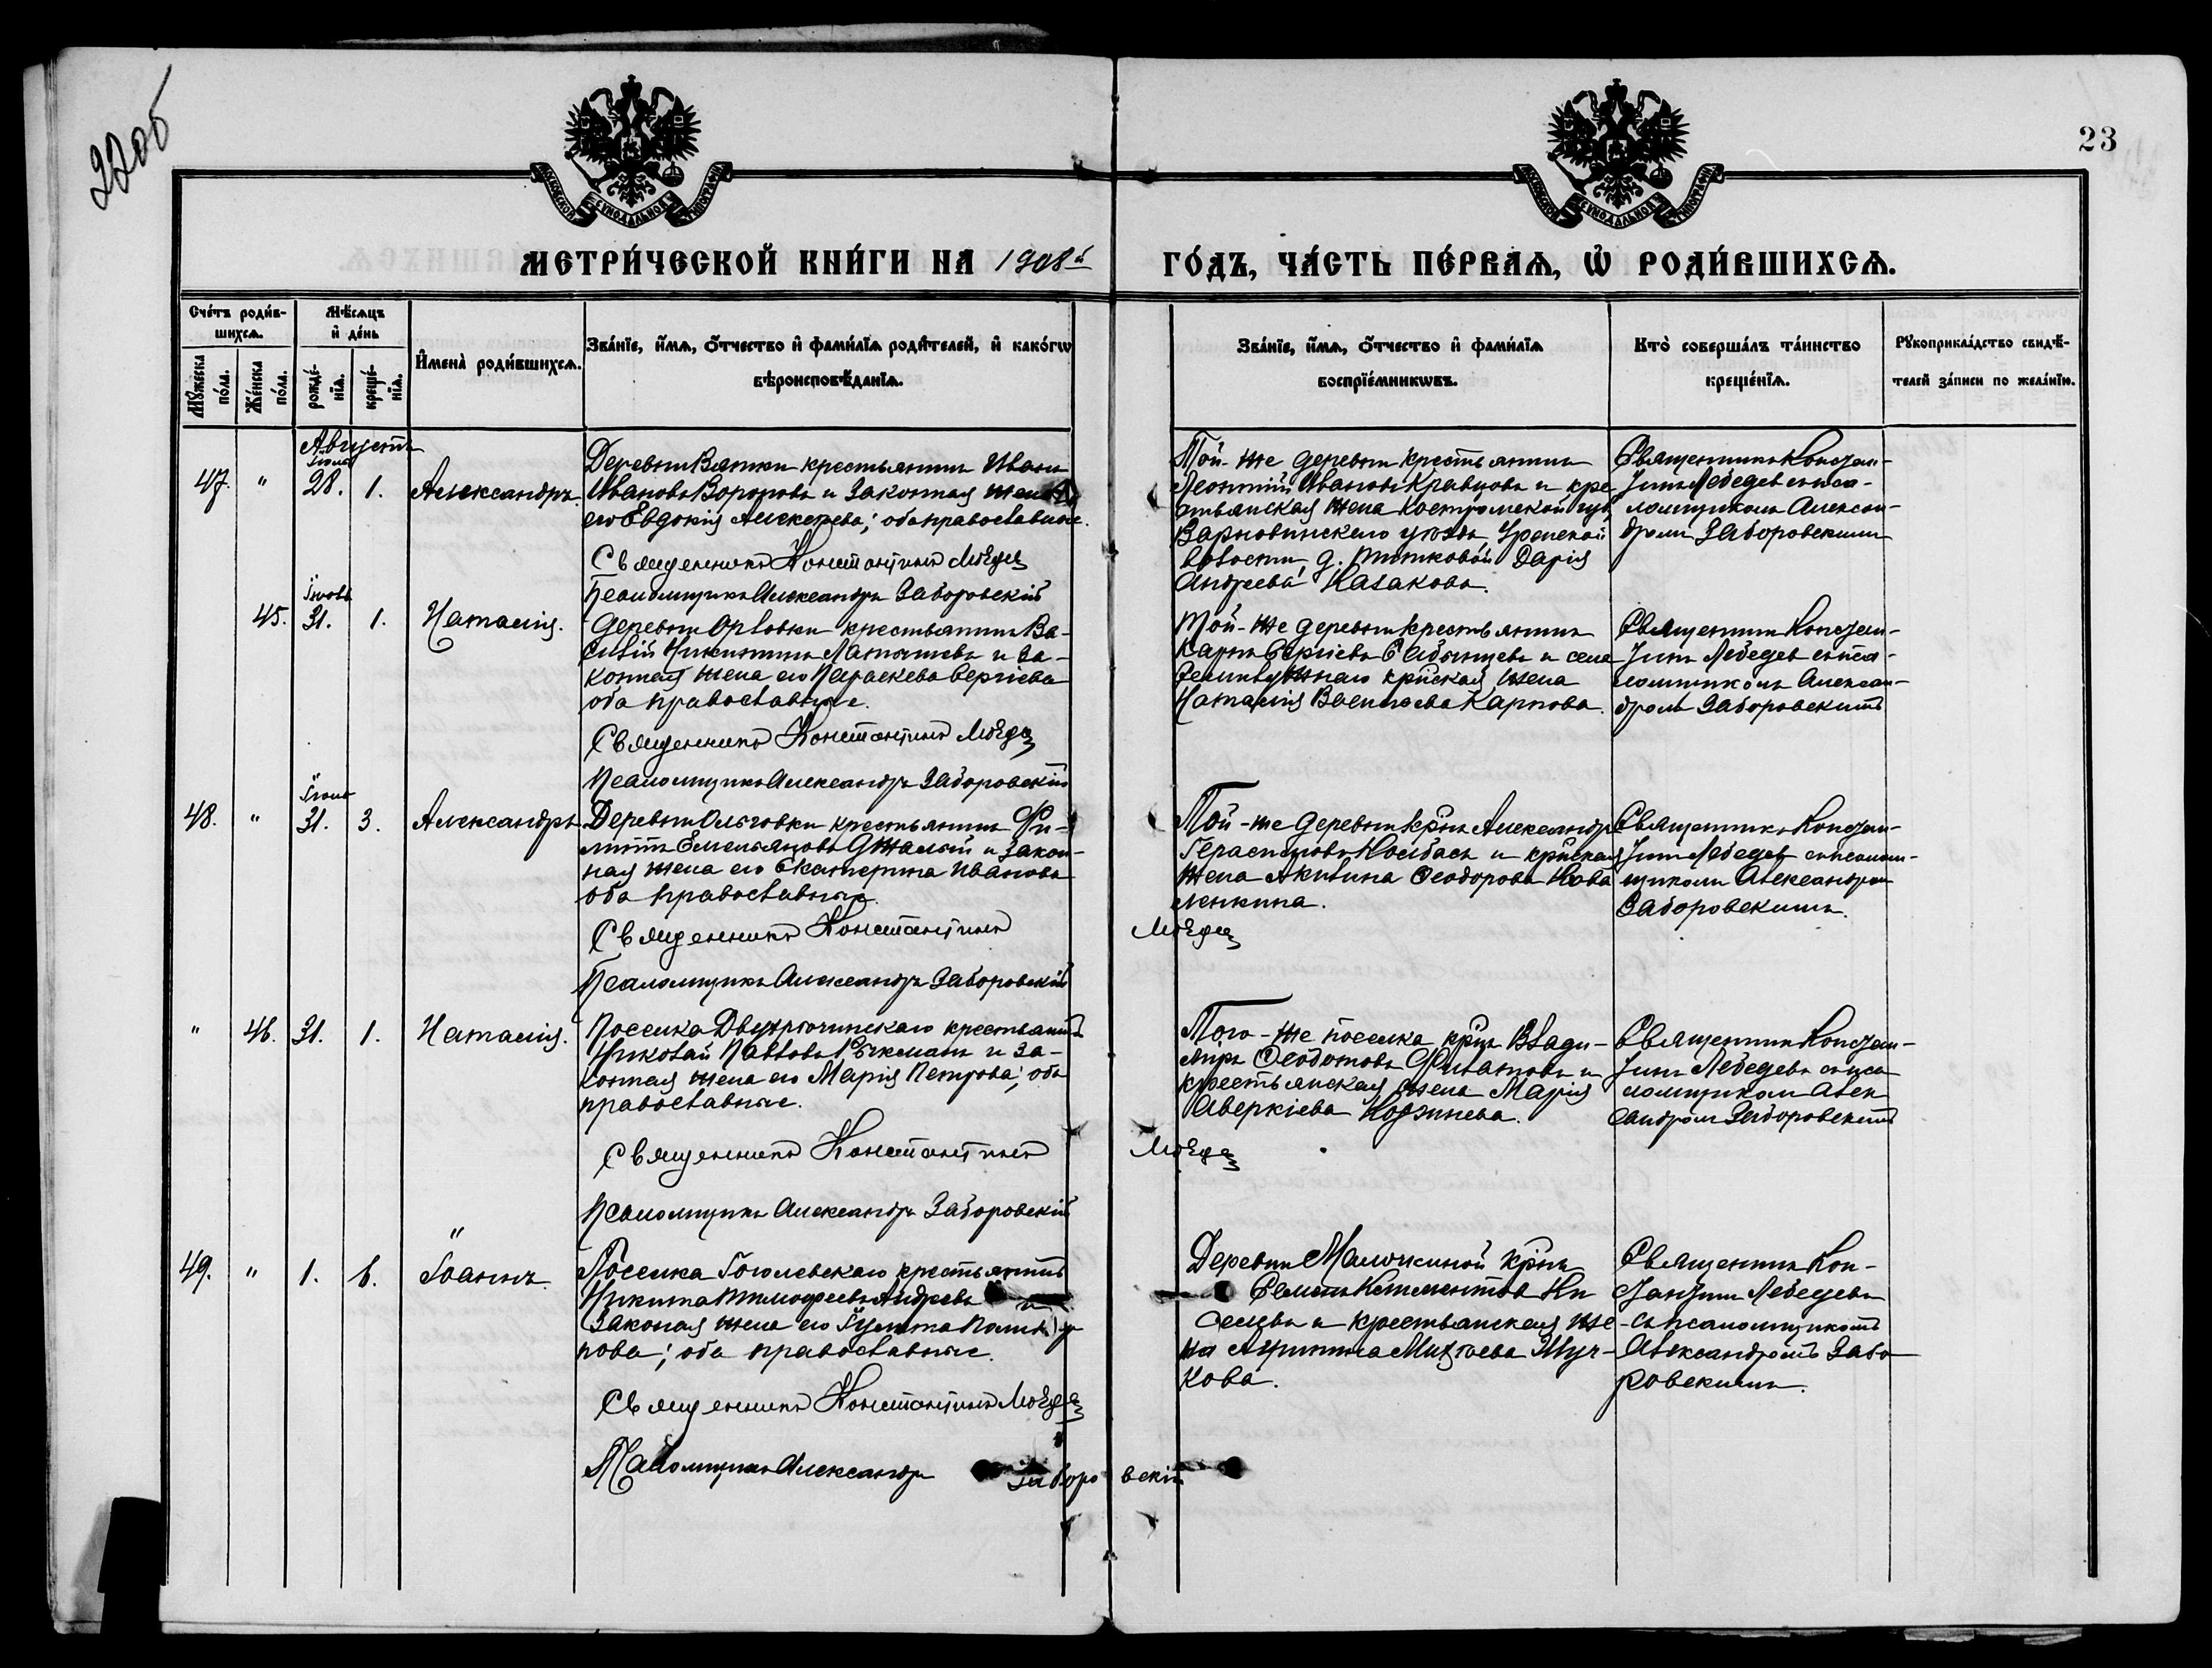 22об
23
МОСКОВСКОЙ СѴНОДАЛЬНОЙ ТИПОГРАФІИ
МОСКОВСКОЙ СѴНОДАЛЬНОЙ ТИПОГРАФІИ
МЕТРИ́ЧЕСКОЙ КНИ́ГИ НА 1908й ГО́ДЪ, ЧА́СТЬ ПЕ́РВАѦ, Ѿ РОДИ́ВШИХСѦ.
Сче́тъ роди́в-
шихсѧ.
Мꙋ́жеска по́ла.
Же́нска по́ла.
Мѣ́сѧцъ
и҆ де́нь
рожде́-
нїѧ.
креще́-
нїѧ.
И҆мена̀ роди́вшихсѧ.
Зва́нїе, и҆́мѧ, ѻ҆́тчество и҆ фами́лїѧ роди́телей, и҆ како́гѡ
вѣроисповѣ́данїѧ.
Зва́нїе, и҆́мѧ, ѻ҆́тчество и҆ фами́лїѧ
воспрїе́мникѡвъ.
Кто̀ соверша́лъ та́инство
креще́нїѧ.
Рꙋкоприкла́дство свидѣ́-
телей за́писи по жела́нїю.
Августъ
47. " 28. 1. Александръ
Деревни Вятки крестьянинъ Иванъ
Ивановъ и законная жена
его Евдокія Алексѣева; оба православные.
Священникъ Константинъ Лебедев
Псаломщикъ Александръ Заборовскій
Той-же деревни крестьянинъ
Леонтій Ивановъ Кравцовъ и кре
стьянская жена Костромской губ,
Варнавинскаго уѣзда, Уренской
волости, д. Титковой Дарія
Андреева Казакова.
Священникъ Констан-
тинъ Лебедев съ пса-
ломщикомъ Алексан-
дромъ Заборовскимъ
Іюль
45. 31. 1. Наталія.
Деревни Орловки крестьянинъ Ва-
силій Никитинъ и за-
конная жена его Параскева Сергіева
оба православные.
Священникъ Константинъ Лебедев
Псаломщикъ Александръ Заборовскій
Той-же деревни крестьянинъ
Карпъ Сергіевъ и села
жена
Наталія Васильева Карпова.
Священникъ Констан-
тинъ Лебедев съ пса-
ломщикомъ Алексан-
дромъ Заборовскимъ
Іюль
48. " 31. 3. Александръ
Деревни Ольговки крестьянинъ Фи-
липпъ Емельяновъ и закон-
ная жена его Екатерина Иванова
оба православные.
Священникъ Константинъ Лебедев
Псаломщикъ Александръ Заборовскій
Той-же деревни кр̃нъ Александръ
Герасимовъ Колбаса и кр̃нская
жена Акилина Ѳеодорова Кова
ленкина.
Священникъ Констан-
тинъ Лебедев съ псалом-
щикомъ Александромъ
Заборовскимъ.
" 46. 31. 1. Наталія.
Поселка Двухрѣчинскаго крестьянинъ
Николай Павловъ и за-
конная жена его Марія Петрова; оба
православные.
Священникъ Константинъ Лебедев
Псаломщикъ Александръ Заборовскій
Того-же поселка кр̃нъ Влади-
міръ Ѳеодотовъ Филатовъ и
крестьянская жена Марія
Аверкіева
Священникъ Констан-
тинъ Лебедевъ съ пса
ломщикомъ Алек
сандромъ Заборовскимъ
49. " 1. 6. Іоаннъ.
Поселка Гоголевскаго крестьянинъ
Никита Тимоѳеевъ Андреевъ и
законая жена его
оба православные.
Священникъ Константинъ Лебедев
Псаломщикъ Александръ Заборовскій
Деревни кр̃нъ
Климентовъ Ки
селевъ и крестьянская же-
на Агрипина Михѣева Жуч-
кова.
Священникъ Кон-
стантинъ Лебедевъ
съ псаломщикомъ
Александромъ Забо
ровскимъ.